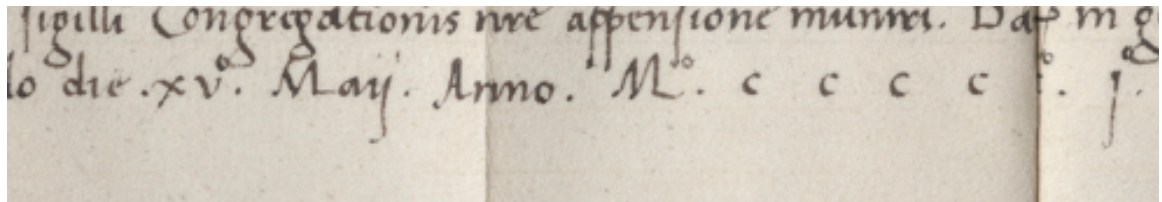 sigilli Congregationis nr̃e appensione muniri. Dat̃ in
die .xv°. Maij. Anno. M°. c c c c °. j°.